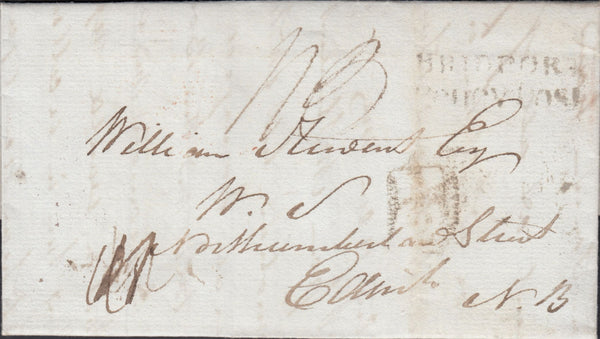 BRIDPORT
PENNY POST
William Steuart Esq
W. S
Northumberland Street
Edinb.
N. B